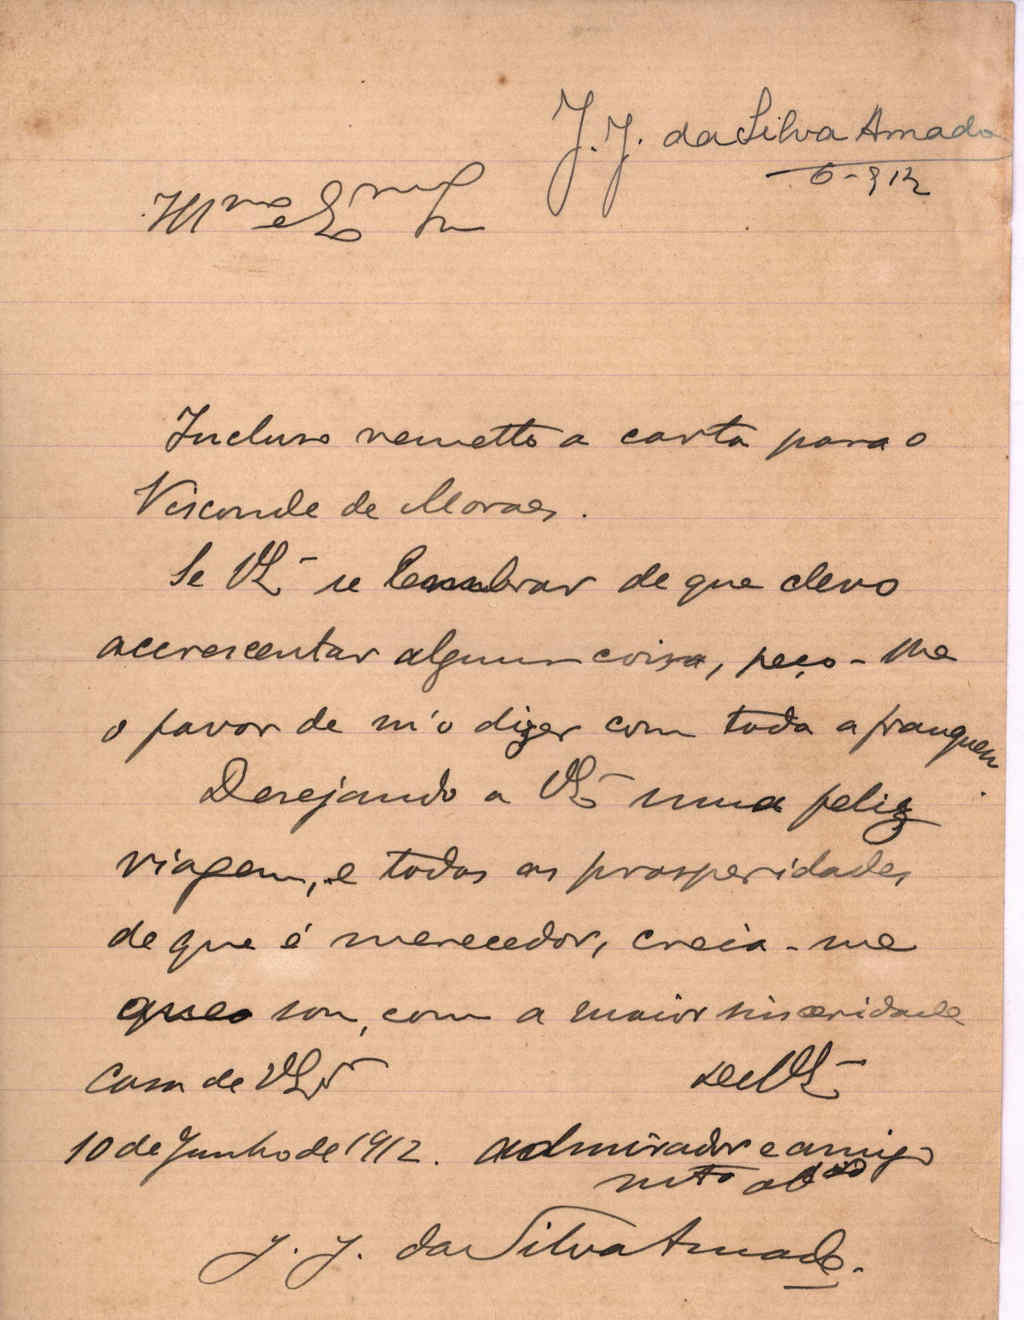 J. J. da Silva Amado
6-912
Illmo e Exmo Sr
Incluso remetto a carta para o
Visconde de Moraes.
Se VEª se lembrar de que devo
accrescentar alguma coisa, peço-lhe
o favor de m'o dizer com toda a franquesa
Desejando a VEª uma feliz
viagem, e todas as prosperidades
de que é merecedor, creia-me
que sou, com a maior sinceridade
Casa de VEª
De VEª
10 de Junho de 1912. admirador e amigo
mto obdo
J. J. da Silva Amado.